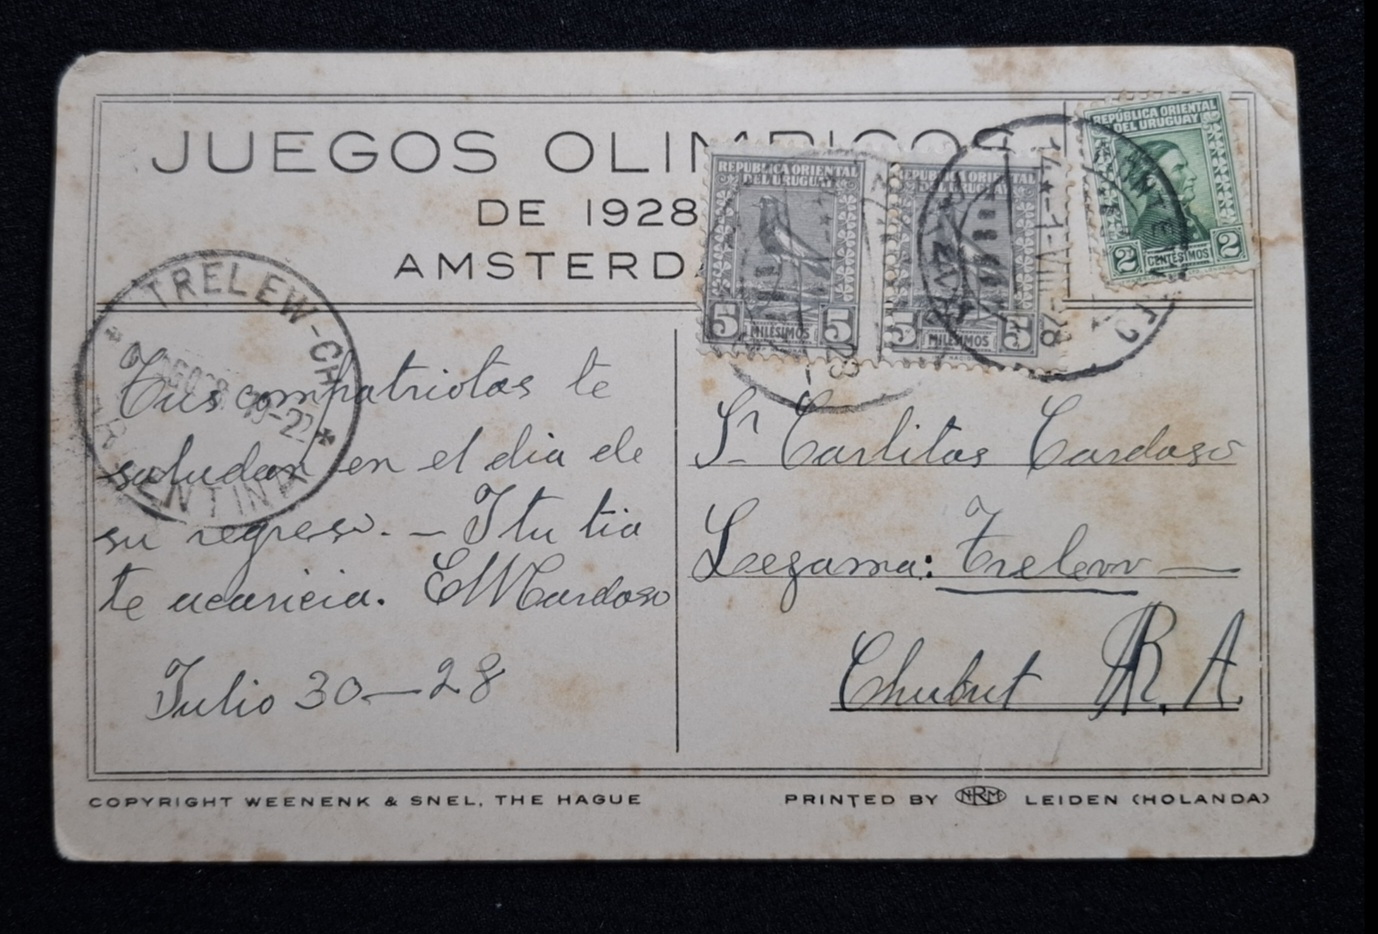 JUEGOS OLIMPICOS
DE 1928
AMSTERDA
REPUBLICA ORIENTAL
DEL URUGUAY
5 MILESIMOS 5
REPUBLICA ORIENTAL
DEL URUGUAY
5 MILESIMOS 5
REPUBLICA ORIENTAL
DEL URUGUAY
2 CENTESIMOS 2
TRELEW-CH
ARGENTINA
Tus compatriotas te
saludan en el dia de
su regreso. – I tu tia
te acaricia. E M Cardoso
Julio 30 – 28
Sr Carlitos Cardoso
Lezama: Trelew —
Chubut R. A.
COPYRIGHT WEENENK & SNEL, THE HAGUE
PRINTED BY NRM LEIDEN (HOLANDA)